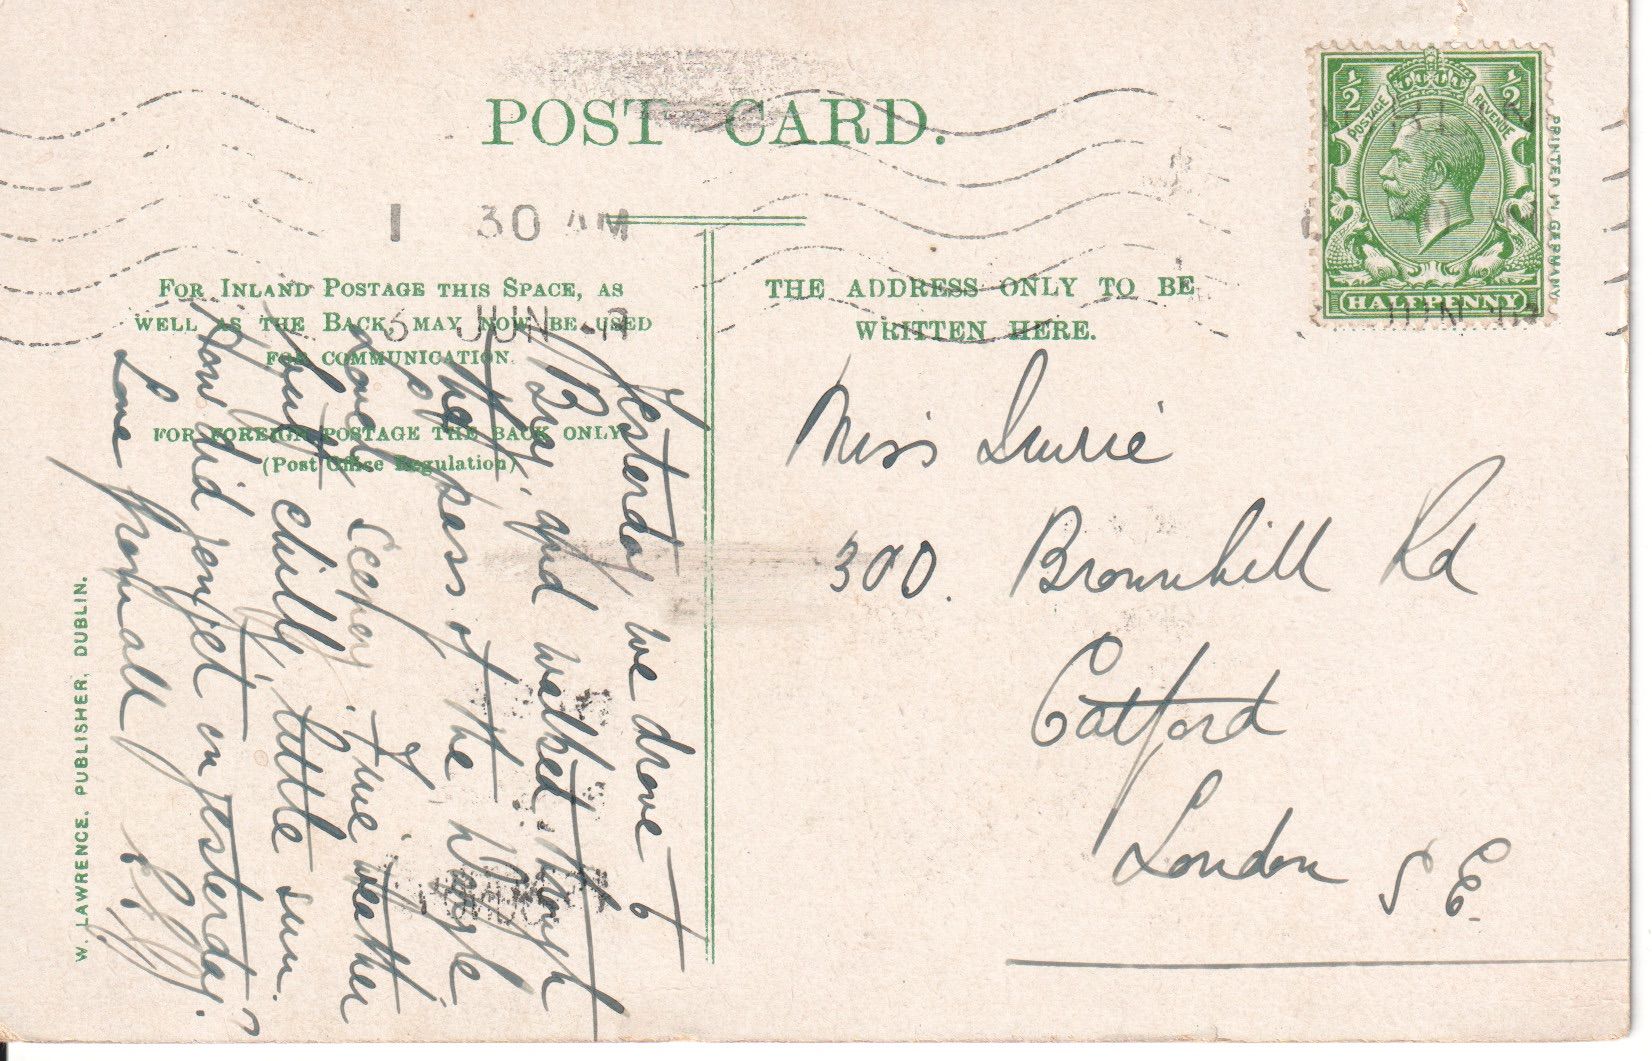 POST CARD.
1 30 AM
5 JUN
FOR INLAND POSTAGE THIS SPACE, AS
WELL AS THE BACK, MAY NOW BE USED
FOR COMMUNICATION.
FOR FOREIGN POSTAGE THE BACK ONLY
(Post Office Regulation)
THE ADDRESS ONLY TO BE
WRITTEN HERE.
½ ½
POSTAGE REVENUE
HALFPENNY
PRINTED IN GERMANY.
W. LAWRENCE, PUBLISHER, DUBLIN.
Yesterday we drove to
Bray, and walked though
the pass of the Dargle
Fine weather
but chilly, little sun.
How did you get on yesterday?
Love from all
Miss Laurie
300. Brownhill Rd
Catford
London S E.